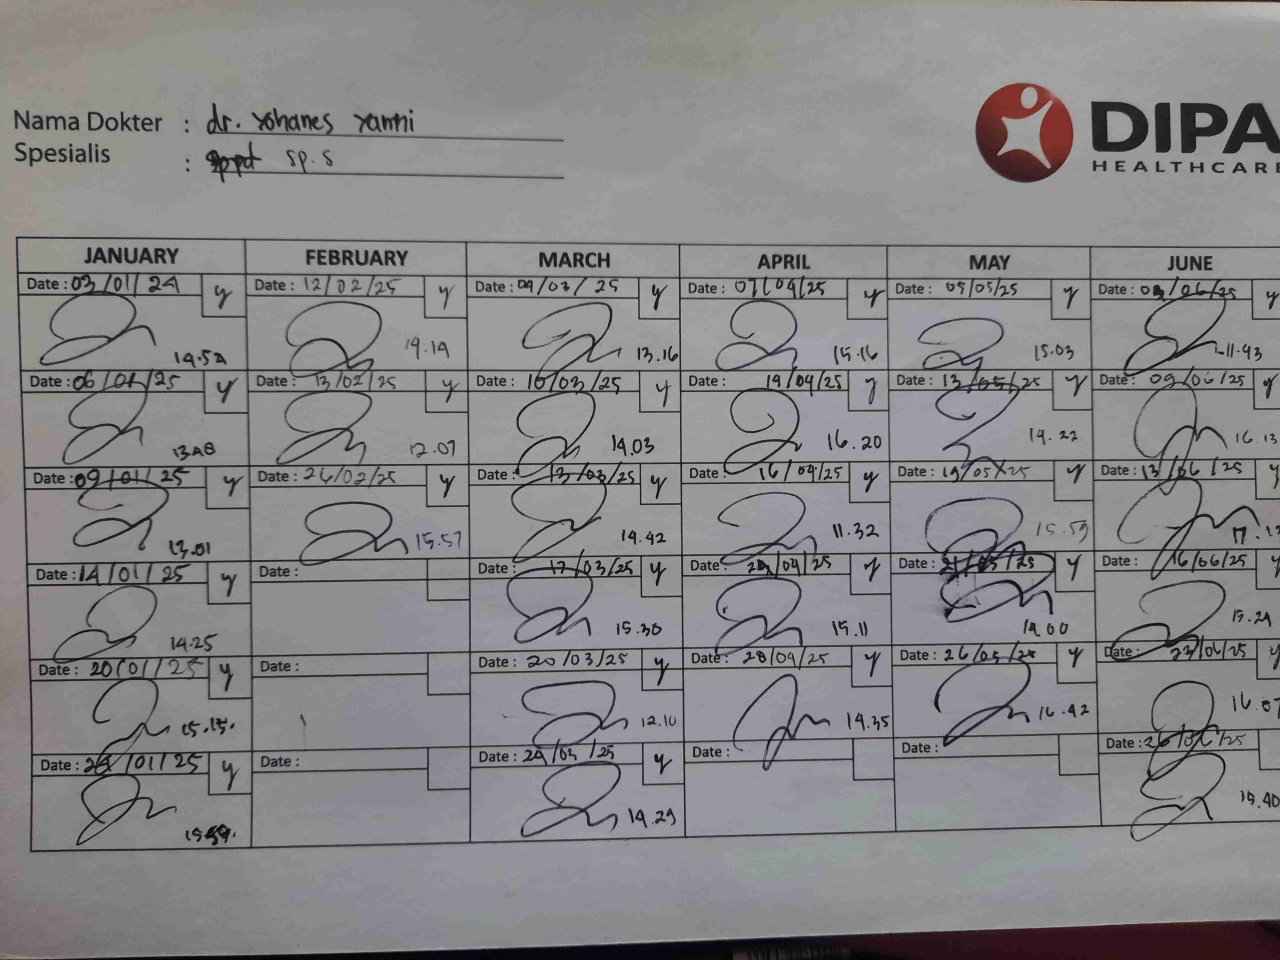 Nama Dokter : dr. Yohanes Yanni
Spesialis : sp.s
DIPA
HEALTHCARE
JANUARY FEBRUARY MARCH APRIL MAY JUNE
Date : 03/01/24 y Date : 12/02/25 y Date : 04/03/25 y Date : 07/04/25 y Date : 05/05/25 y Date : /06/25 y
14.52 14.14 13.16 15.16 15.03 11.43
Date : 06/01/25 y Date : 13/02/25 y Date : 10/03/25 y Date : 14/04/25 y Date : 13/05/25 y Date : 09/06/25 y
12.07 14.03 16.20 14.22 16.13
Date : 09/01/25 y Date : 26/02/25 y Date : 13/03/25 y Date : 16/04/25 y Date : 19/05/25 y Date : 13/06/25 y
13.01 15.57 14.42 11.32 15.59 17.
Date : 14/01/25 y Date : Date : 17/03/25 y Date : /04/25 y Date : 21/05/25 y Date : 16/06/25 y
14.25 15.30 15.11 14.00 15.24
Date : 20/01/25 y Date : Date : 20/03/25 y Date : 28/04/25 y Date : 26/05/25 y Date : 23/06/25 y
15.15. 12.10 14.35 16.42 16.07
Date : /01/25 y Date : Date : 24/03/25 y Date : Date : Date : 26/06/25
14.29 15.40